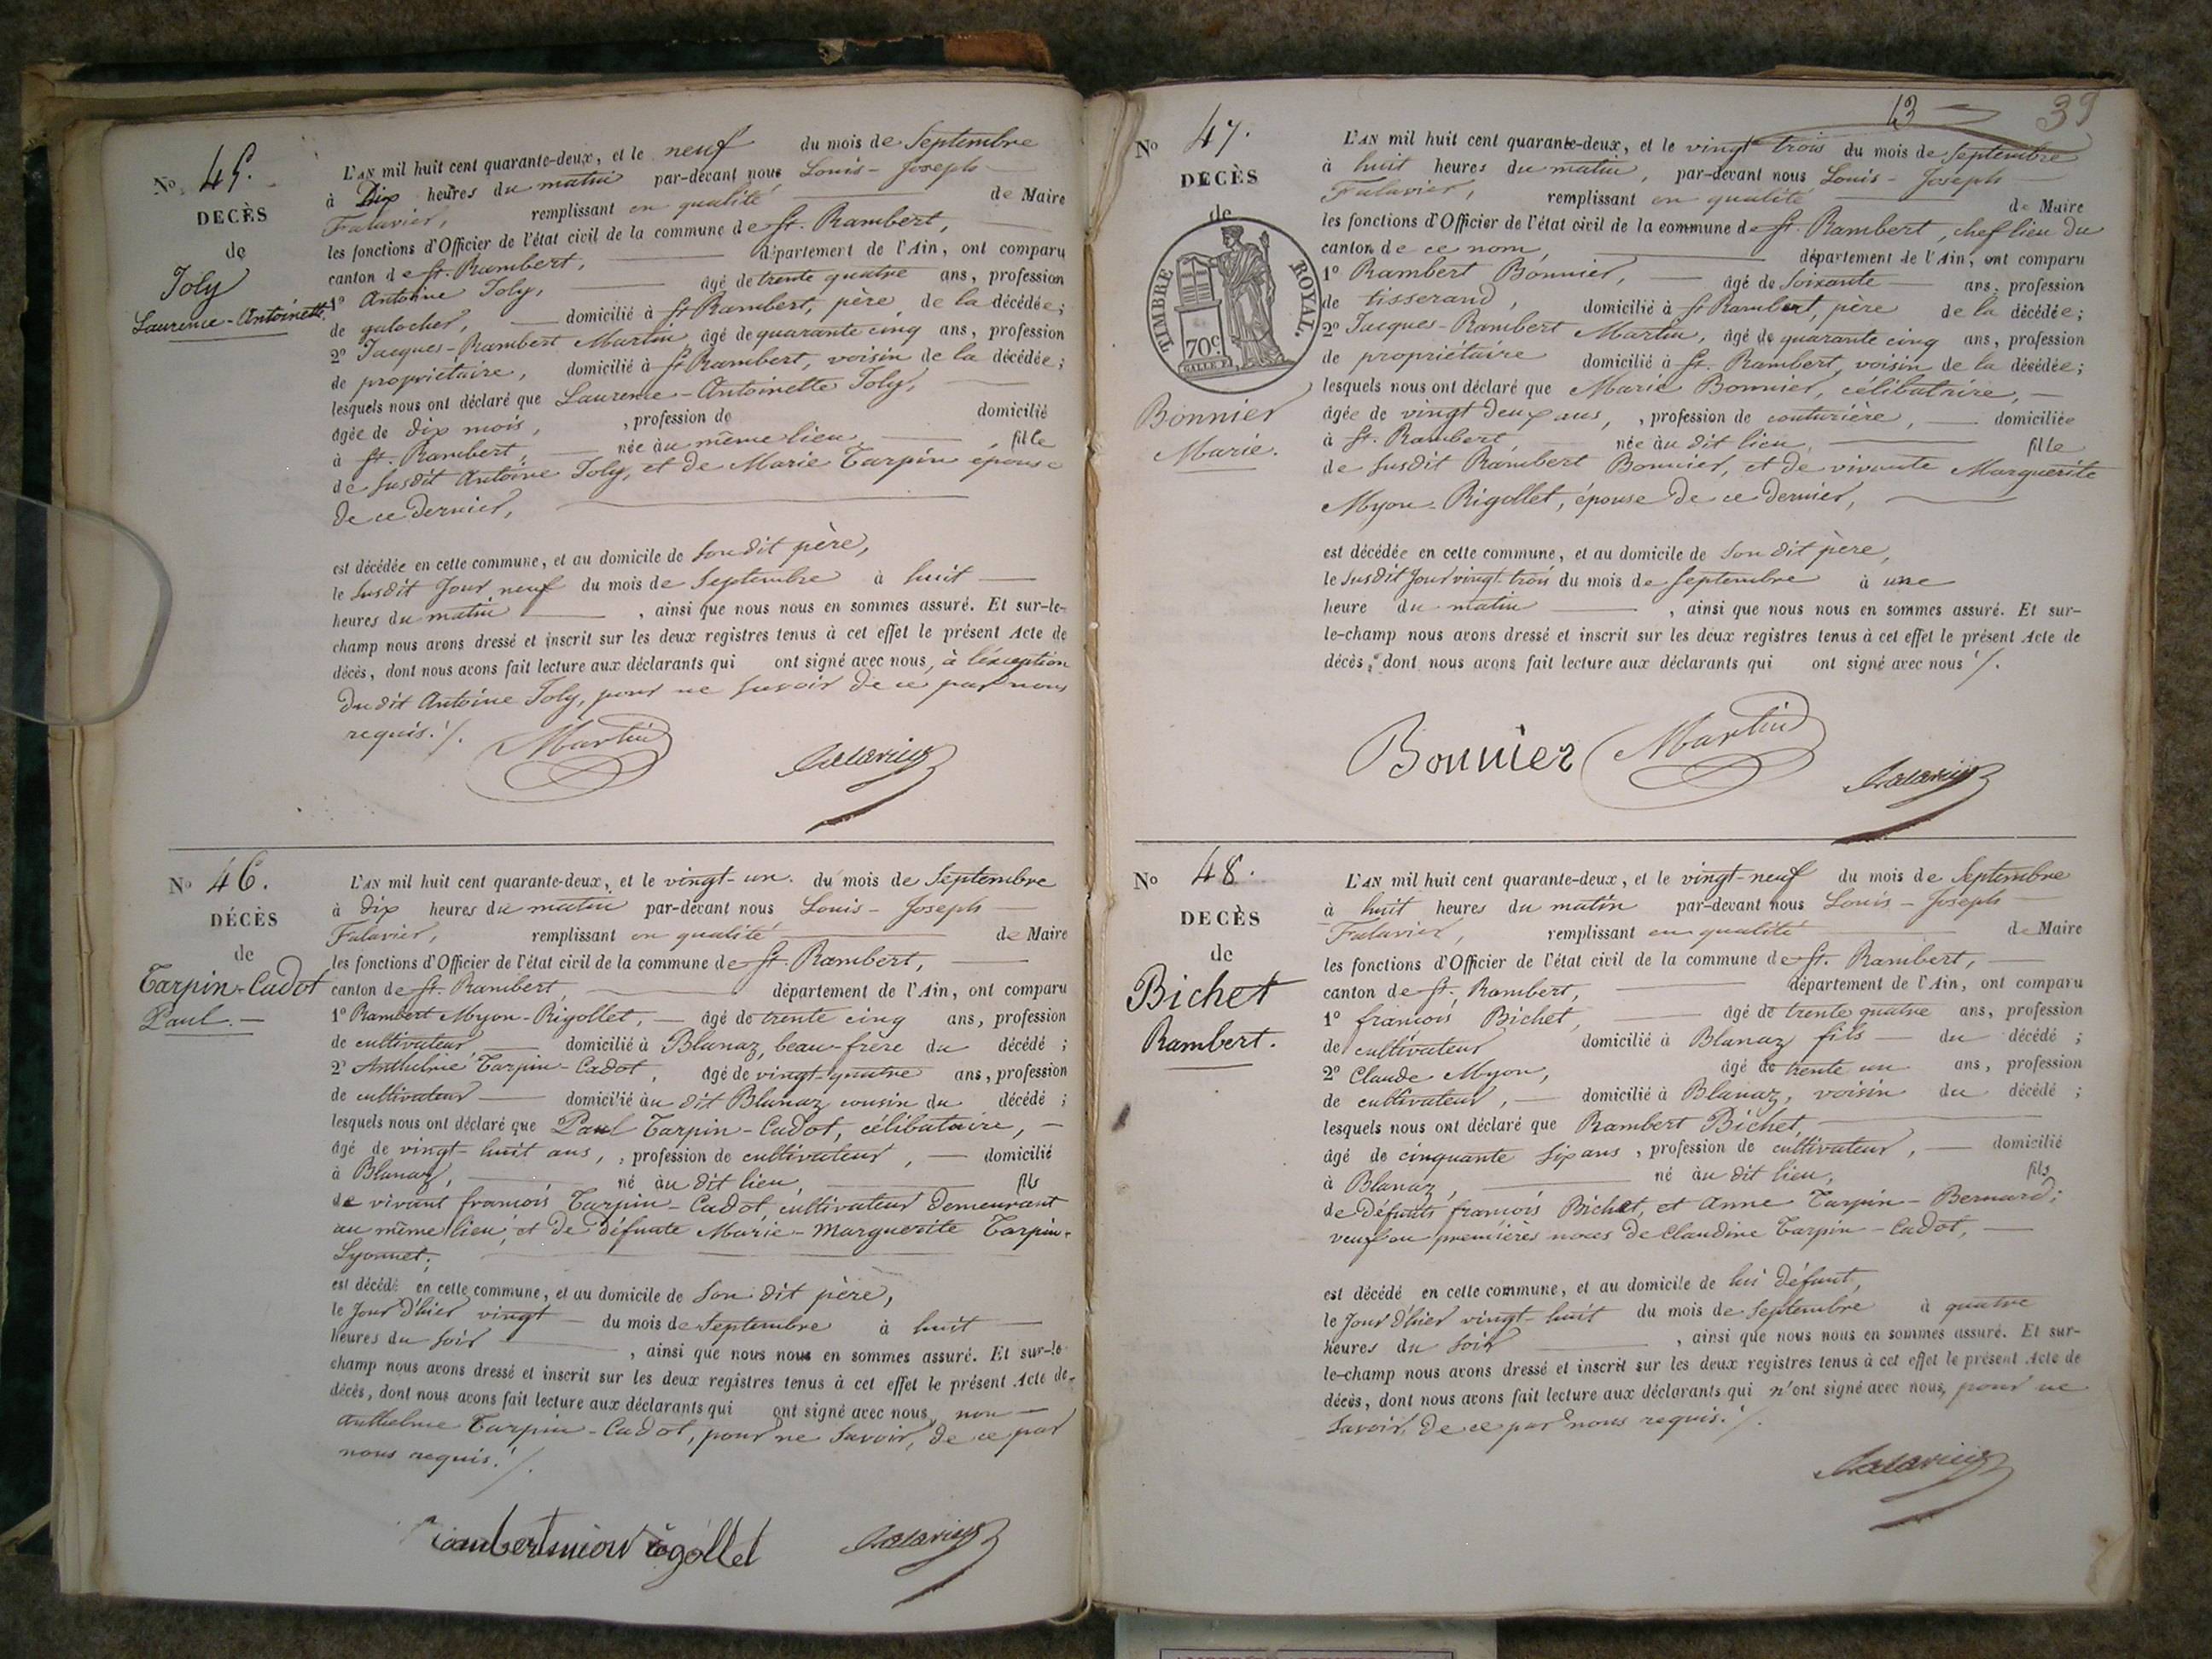 No 45.
DECÈS
de
Joly
Laurence-Antoinette.
L'AN mil huit cent quarante-deux, et le neuf du mois de Septembre
à Dix heures du matin par-devant nous Louis-Joseph
Falavier, remplissant en qualité de Maire
les fonctions d'Officier de l'état civil de la commune de St. Rambert,
canton de St. Rambert, département de l'Ain, ont comparu
1º Antoine Joly, âgé de trente quatre ans, profession
de galocher, domicilié à St Rambert, père de la décédée;
2º Jacques-Rambert Martin âgé de quarante cinq ans, profession
de propriétaire, domicilié à St Rambert, voisin de la décédée;
lesquels nous ont déclaré que Laurence-Antoinette Joly,
âgée de dix mois, , profession de domicilié
à St. Rambert, née àu même lieu, , fille
de susdit Antoine Joly, et de Marie Tarpin épouse
de ce dernier,
est décédée en cette commune, et au domicile de son dit père,
le susdit jour neuf du mois de Septembre à huit
heures du matin , ainsi que nous nous en sommes assuré. Et sur-le-
champ nous avons dressé et inscrit sur les deux registres tenus à cet effet le présent Acte de
décès, dont nous avons fait lecture aux déclarants qui ont signé avec nous, à l'éxception
du dit Antoine Joly, pour ne savoir de ce par nous
requis./.
Martin Falavier
No 46.
DÉCÈS
de
Tarpin-Cadot
Paul.
L'AN mil huit cent quarante-deux, et le vingt-un. du mois de Septembre
à dix heures du matin par-devant nous Louis-Joseph
Falavier, remplissant en qualité de Maire
les fonctions d'Officier de l'état civil de la commune de St Rambert,
canton de St. Rambert, département de l'Ain, ont comparu
1º Rambert Myon-Rigollet, âgé de trente cinq ans, profession
de cultivateur domicilié à Blanaz, beau-frère du décédé ;
2º Anthelme Tarpin-Cadot, âgé de vingt-quatre ans, profession
de cultivateur domicilié àu dit Blanaz cousin du décédé ;
lesquels nous ont déclaré que Paul Tarpin-Cadot, célibataire,
âgé de vingt-huit ans, , profession de cultivateur, domicilié
à Blanaz, né àu dit lieu, fils
de vivant francois Tarpin-Cadot, cultivateur demeurant
au même lieu, et de défunte Marie-Marguerite Tarpin-
Lyonnet;
est décédé en cette commune, et au domicile de son dit père,
le jour d'hier vingt du mois de Septembre à huit
heures du soir , ainsi que nous nous en sommes assuré. Et sur-le
champ nous avons dressé et inscrit sur les deux registres tenus à cet effet le présent Acte de
décès, dont nous avons fait lecture aux déclarants qui ont signé avec nous, non
anthelme Tarpin-Cadot, pour ne savoir, de ce par
nous requis./.
rambertmion rigollet Falavier
13 39
No 47.
DECÈS
de
TIMBRE ROYAL.
70c
Bonnier
Marie.
L'AN mil huit cent quarante-deux, et le vingt trois du mois de Septembre
à huit heures du matin, par-devant nous Louis-Joseph
Falavier, remplissant en qualité de Maire
les fonctions d'Officier de l'état civil de la commune de St. Rambert, chef lieu du
canton de ce nom, département de l'Ain, ont comparu
1º Rambert Bonnier, âgé de soixante ans, profession
de tisserand, domicilié à St Rambert, père de la décédée;
2º Jacques-Rambert Martin, âgé de quarante cinq ans, profession
de propriétaire domicilié à St. Rambert, voisin de la décédée;
lesquels nous ont déclaré que Marie Bonnier, célibataire,
âgée de vingt deux ans, , profession de couturière, domiciliée
à St. Rambert née àu dit lieu, fille
de susdit Rambert Bonnier, et de vivante Marguerite
Myon-Rigollet, épouse de ce dernier,
est décédée en cette commune, et au domicile de son dit père,
le susdit jour vingt trois du mois de Septembre à une
heure du matin , ainsi que nous nous en sommes assuré. Et sur-
le-champ nous avons dressé et inscrit sur les deux registres tenus à cet effet le présent Acte de
décès, dont nous avons fait lecture aux déclarants qui ont signé avec nous ./.
Bonnier Martin Falavier
No 48.
DECÈS
de
Bichet
Rambert.
L'AN mil huit cent quarante-deux, et le vingt-neuf du mois de Septembre
à huit heures du matin par-devant nous Louis-Joseph
Falavier, remplissant en qualité de Maire
les fonctions d'Officier de l'état civil de la commune de St. Rambert,
canton de St, Rambert, département de l'Ain, ont comparu
1º francois Bichet, âgé de trente quatre ans, profession
de cultivateur domicilié à Blanaz fils du décédé ;
2º Claude Myon, âgé de trente un ans, profession
de cultivateur, domicilié à Blanaz, voisin du décédé ;
lesquels nous ont déclaré que Rambert Bichet,
âgé de cinquante six ans , profession de cultivateur, domicilié
à Blanaz, né àu dit lieu, fils
de défunts francois Bichet, et Anne Tarpin-Bernard;
veuf en premières noces de Claudine Tarpin-Cadot,
est décédé en cette commune, et au domicile de lui défunt,
le jour d'hier vingt-huit du mois de Septembre à quatre
heures du soir , ainsi que nous nous en sommes assuré. Et sur-
le-champ nous avons dressé et inscrit sur les deux registres tenus à cet effet le présent Acte de
décès, dont nous avons fait lecture aux déclarants qui n'ont signé avec nous, pour ne
savoir, de ce par nous requis./.
Falavier